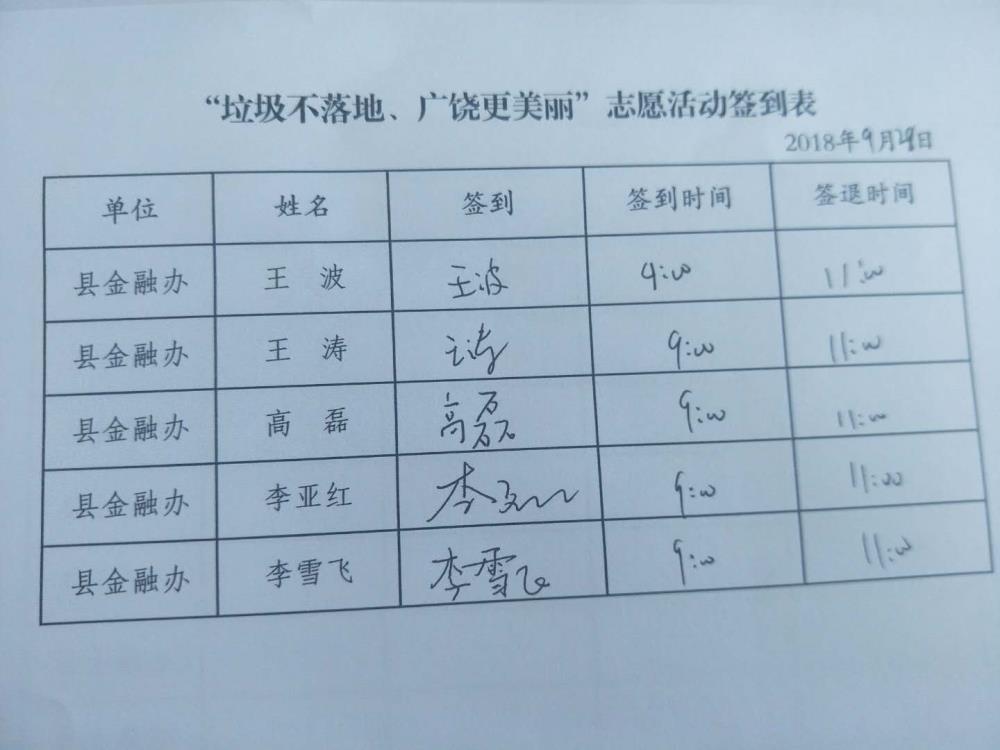 “垃圾不落地、广饶更美丽”志愿活动签到表
2018年9月29日
单位 姓名 签到 签到时间 签退时间
县金融办 王 波 王波 9:00 11:00
县金融办 王 涛 王涛 9:00 11:00
县金融办 高 磊 高磊 9:00 11:00
县金融办 李亚红 李亚红 9:00 11:00
县金融办 李雪飞 李雪飞 9:00 11:00